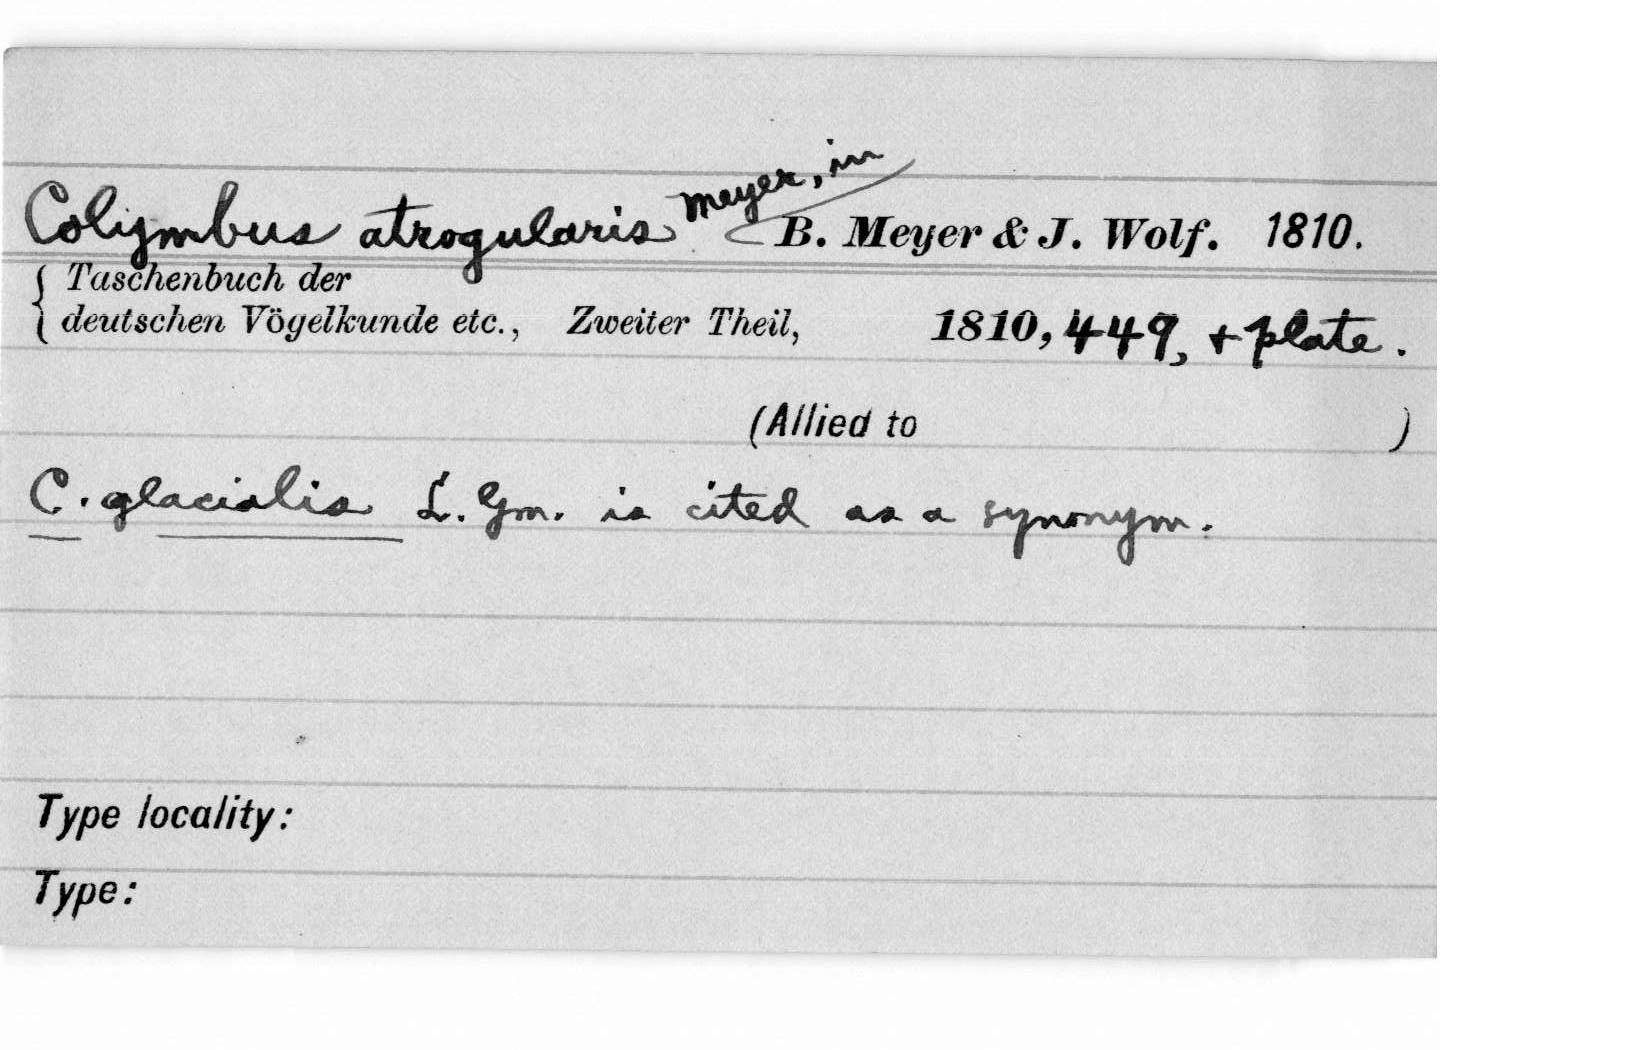 Colymbus atrogularis Meyer, in B. Meyer & J. Wolf. 1810.
Taschenbuch der
deutschen Vögelkunde etc., Zweiter Theil, 1810, 449, + plate.
(Allied to )
C. glacialis L. Gm. is cited as a synonym.
Type locality:
Type: